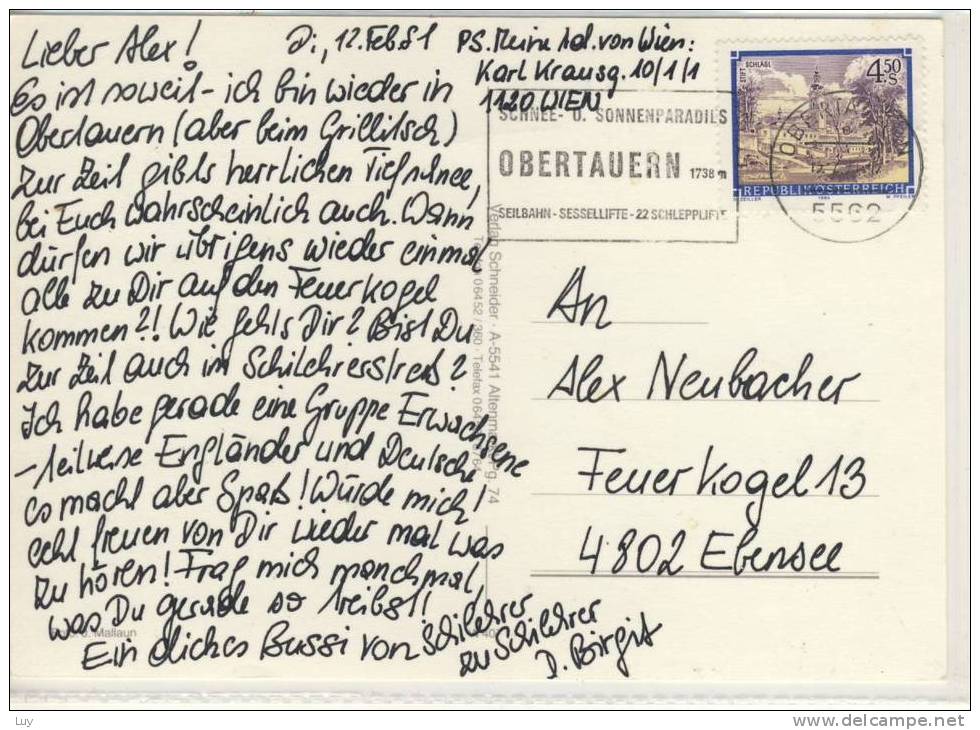 Lieber Alex!
Di, 12. Feb. 81
Es ist soweit - ich bin wieder in
Obertauern (aber beim Grillitsch)
Zur Zeit gibts herrlichen Tiefschnee,
bei Euch wahrscheinlich auch. Wann
dürfen wir übrigens wieder einmal
alle zu Dir auf den Feuerkogel
kommen?! Wie gehts Dir? Bist Du
zur Zeit auch im Schilehrerstreß?
Ich habe gerade eine Gruppe Erwachsene
- teilweise Engländer und Deutsche
es macht aber Spaß! Würde mich
echt freuen von Dir wieder mal was
zu hören! Frag mich manchmal,
was Du gerade so treibst!
Ein dickes Bussi von Schilehrer
zu Schilehrer
D. Birgit
PS. Meine Ad. von Wien:
Karl Krausg. 10/1/1
1120 WIEN
SCHNEE- U. SONNENPARADIES
OBERTAUERN 1738 m
SEILBAHN - SESSELLIFTE - 22 SCHLEPPLIFTE
STIFT SCHLÄGL
4.50 S
REPUBLIK ÖSTERREICH
OBERTAUERN
5562
An
Alex Neubacher
Feuerkogel 13
4802 Ebensee
Verlag Schneider · A-5541 Altenmarkt
74
06452 / 360 · Telefax
Mallaun
Luy
www.delcampe.net